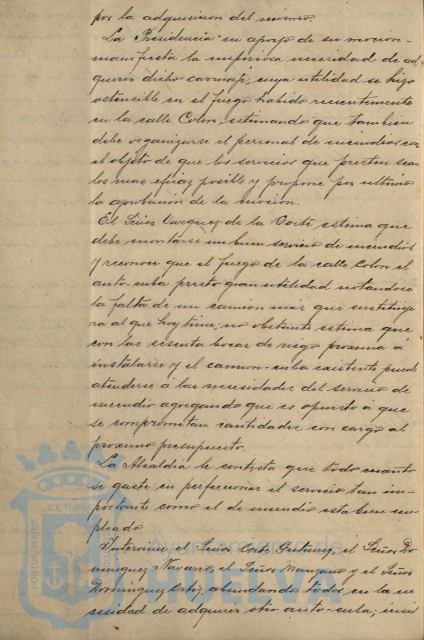 por la adquisicion del mismo.
La Presidencia en apoyo de su mocion
manifiesta la imperiosa necesidad de ad-
quirir dicho carruaje, cuya utilidad se hizo
ostensible en el fuego habido recientemente
en la calle Colon, estimando que tambien
debe organizarse el personal de incendios con
el objeto de que los servicios que presten sean
los mas eficaz posible y propone por ultimo
la aprobacion de la mocion.
El Señor Vazquez de la Corte estima que
debe montarse un buen servicio de incendios
y reconoce que el fuego de la calle Colon el
auto-cuba prestó gran utilidad notandose
la falta de un camion mas que sustituye-
ra al que hoy tiene; no obstante estima que
con las sesenta bocas de riego proxima á
instalarse y el camion-cuba existente puede
atenderse á las necesidades del servicio de
incendio agregando que es opuesto a que
se comprometan cantidades con cargo al
proximo presupuesto.
La Alcaldia le contesta que todo cuanto
se gaste en perfeccionar el servicio tan im-
portante como el de incendio esta bien em-
pleado.
Intervienen el Señor Corte Gutierrez, el Señor Do-
minguez Navarro, el Señor Manzano y el Señor
Dominguez Ortiz, abundando todos en la ne-
cesidad de adquirir otro auto-cuba; insis
Ayuntamiento de
HUELVA